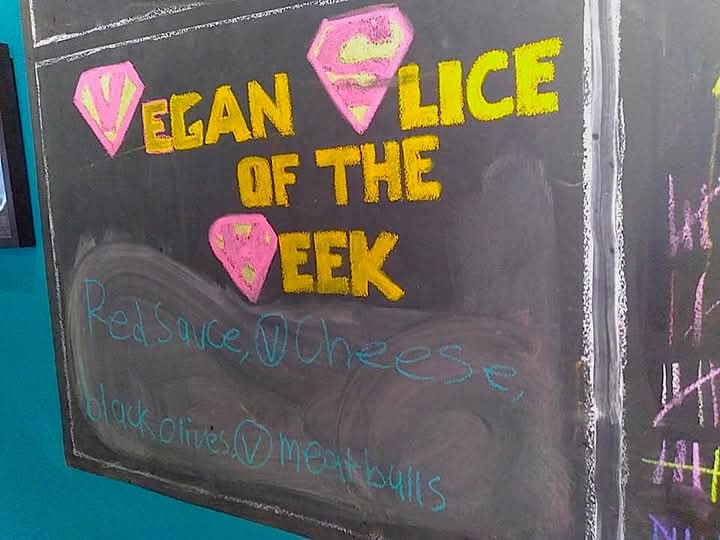 VEGAN SLICE
OF THE
WEEK
Red Sauce, Ⓥ Cheese,
black olives, Ⓥ meatballs